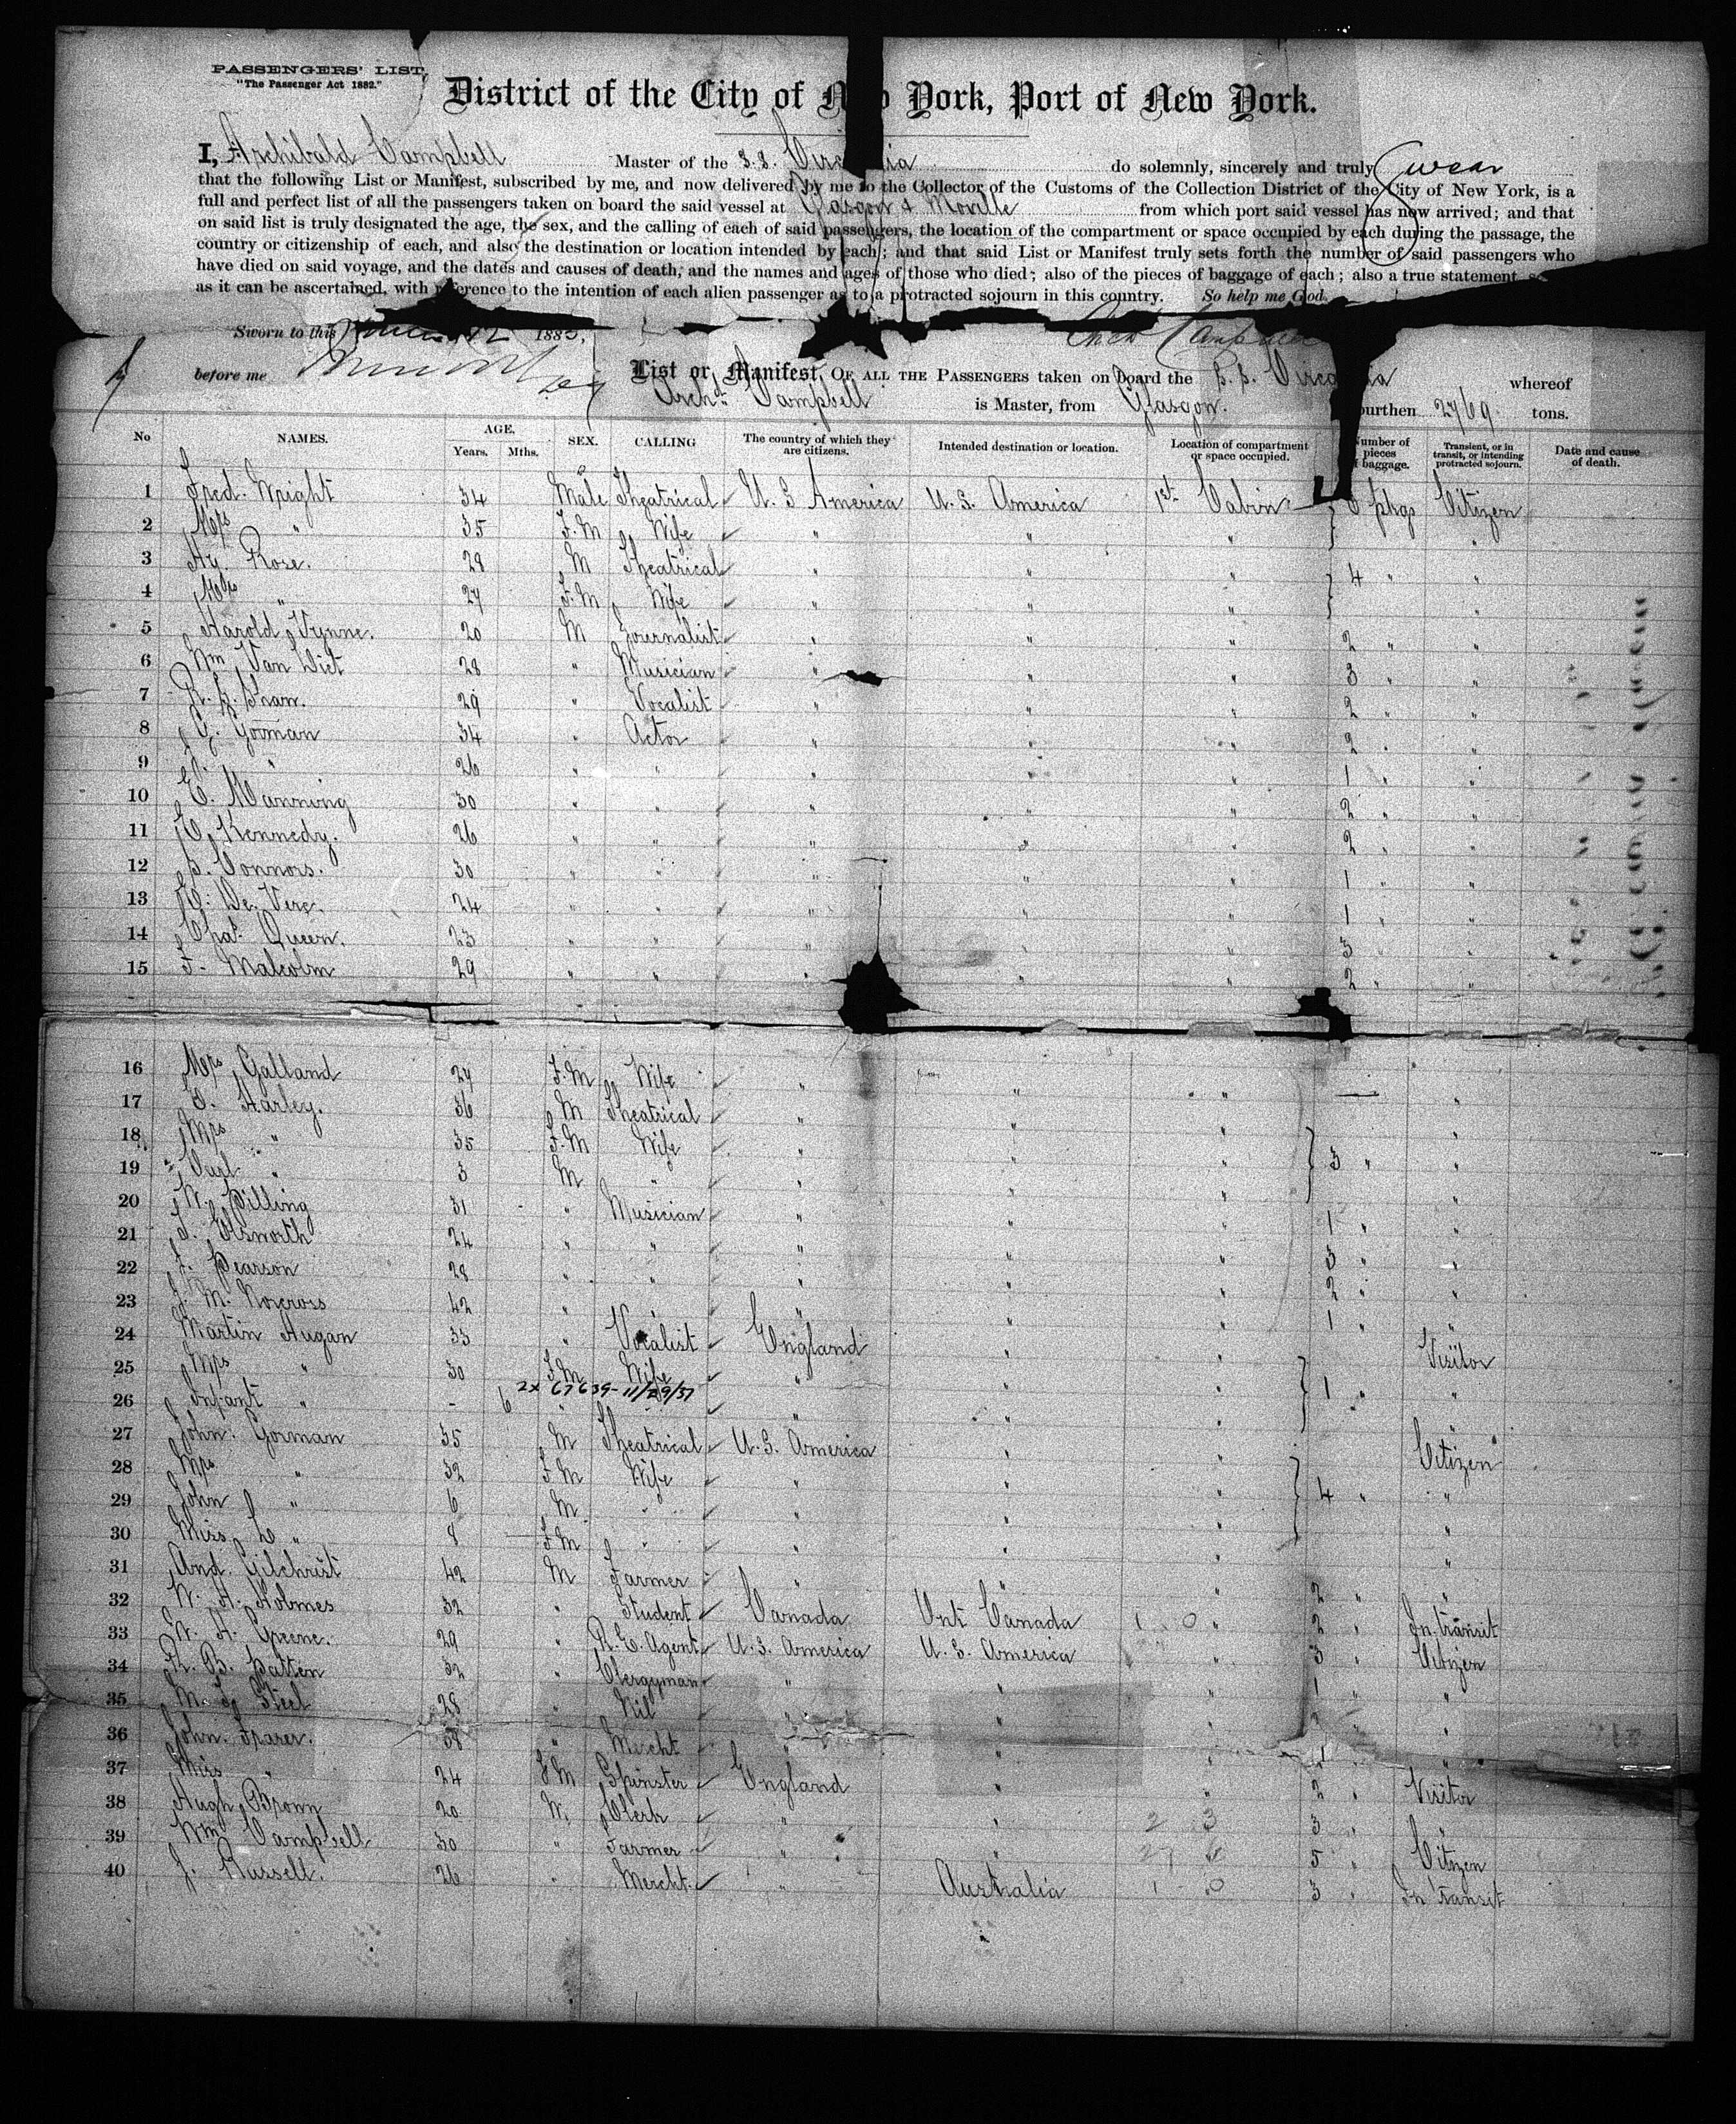 PASSENGERS' LIST,
"The Passenger Act 1882."
District of the City of N York, Port of New York.
I, Archibald Campbell Master of the S.S. Circassia do solemnly, sincerely and truly swear
that the following List or Manifest, subscribed by me, and now delivered by me to the Collector of the Customs of the Collection District of the City of New York, is a
full and perfect list of all the passengers taken on board the said vessel at Glasgow & Moville from which port said vessel has now arrived; and that
on said list is truly designated the age, the sex, and the calling of each of said passengers, the location of the compartment or space occupied by each during the passage, the
country or citizenship of each, and also the destination or location intended by each; and that said List or Manifest truly sets forth the number of said passengers who
have died on said voyage, and the dates and causes of death, and the names and ages of those who died; also of the pieces of baggage of each; also a true statement, so
as it can be ascertained, with reference to the intention of each alien passenger as to a protracted sojourn in this country. So help me God.
Sworn to this 12 1885, Arch Campbell
before me List or Manifest OF ALL THE PASSENGERS taken on board the S.S. Circassia whereof
Archd. Campbell is Master, from Glasgow. burthen 2769 tons.
No NAMES. AGE. Years. Mths. SEX. CALLING The country of which they are citizens. Intended destination or location. Location of compartment or space occupied. Number of pieces of baggage. Transient, or in transit, or intending protracted sojourn. Date and cause of death.
1 Fred. Wright 34 Male Theatrical U.S America U.S. America 1st Cabin pkgs Citizen
2 Mrs " 35 F.M Wife " " " "
3 Hy. Rose. 28 M Theatrical " " " 4 " "
4 Mrs " 27 F.M Wife " " " "
5 Harold Vynne. 20 M Journalist " " " 2 " "
6 Wm Van 28 " Musician " " " 3 " "
7 29 " Vocalist " " " 2 " "
8 G. Gorman 34 " Actor " " " 2 " "
9 " 26 " " " " " 1 " "
10 E. Manning 30 " " " " " 2 " "
11 Kennedy. 26 " " " " " 2 " "
12 Connors. 30 " " " " " 1 " "
13 De Vere. 24 " " " " " 1 " "
14 Chas. Queen. 23 " " " " " 3 " "
15 F. Malcolm 29 " " " " " 2 " "
16 Mrs Galland 27 F.M Wife " " " — "
17 Harley. 36 M Theatrical " " " "
18 Mrs " 35 F.M Wife " " " 3 " "
19 Carl " 3 M " " " " "
20 W. Pilling 31 " Musician " " " 1 " "
21 24 " " " " " 3 " "
22 J. Pearson 28 " " " " " 2 " "
23 J. M. Norcross 42 " " " " " 1 " "
24 Martin Hugan 33 " Vocalist England " " Visitor
25 Mrs " 30 F.M Wife " " " 1 " "
2x 67639-11/29/37
26 Infant " - 6 " " " " "
27 John. Gorman 35 M Theatrical U.S. America " " Citizen
28 Mrs " 32 F.M Wife " " " 4 " "
29 John " 6 M " " " " "
30 Miss " 8 F.M " " " " "
31 And. Gilchrist 42 M Farmer " " " 2 " "
32 W. H. Holmes 32 " Student Canada Ont Canada " 2 " In transit
33 W. H. Greene. 29 " R.E. Agent U.S. America U.S. America " 3 " Citizen
34 R. B. Patten 32 " Clergyman " " " 1 " "
35 M. Steel 28 " Nil " " " " "
36 John. Frazer. 38 " Mercht " " " 1 " "
37 Miss " 24 F M Spinster England " " 2 " Visitor
38 Hugh Brown 20 M. Clerk " " 2 3 3 " "
39 Wm Campbell 30 " Farmer " " 5 " Citizen
40 J. Russell. 26 " Mercht. " Australia 1 0 3 " In transit